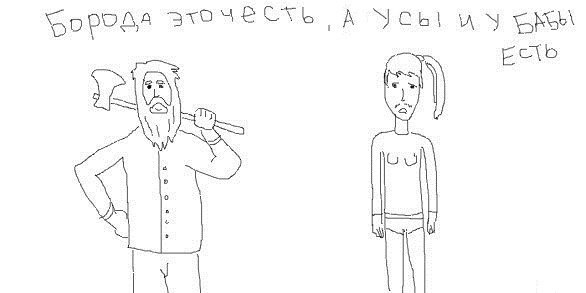 Борода это честь, а усы и у Бабы
есть